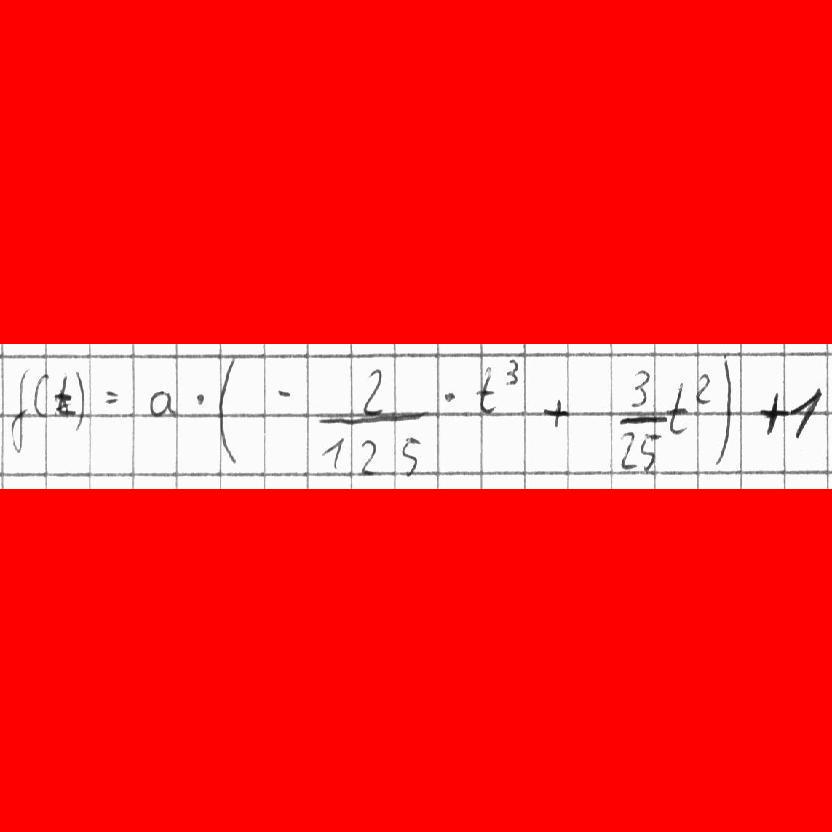 f(t) = a · ( - 2/125 · t³ + 3/25 t² ) + 1